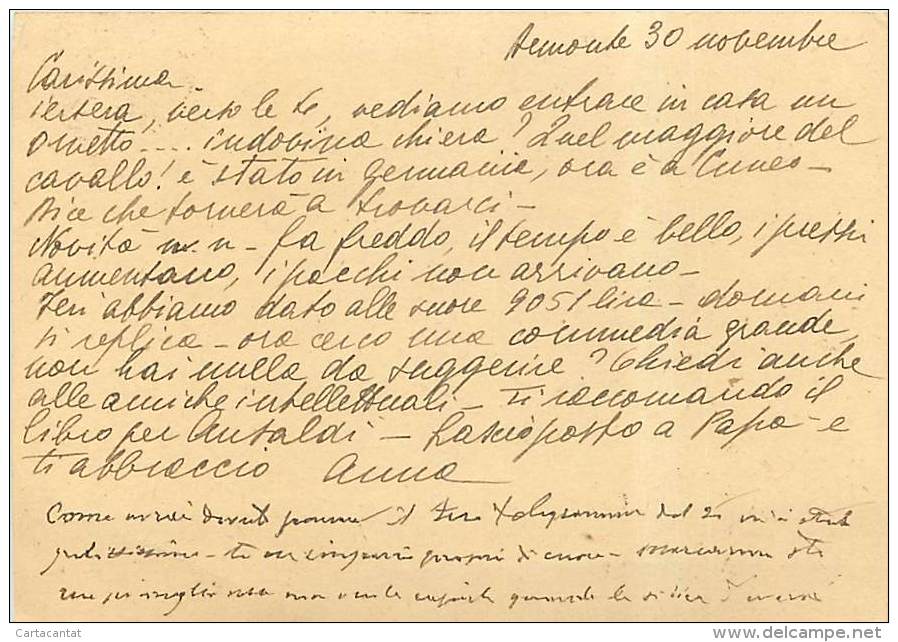 Demonte 30 novembre
Carissima
iersera, verso le 6, vediamo entrare in casa un
ometto .... indovina chi era? Quel maggiore del
cavallo! è stato in Germania, ora è a Cuneo -
Dice che tornerà a trovarci -
Novità n. n - fa freddo, il tempo è bello, i prezzi
aumentano, i pacchi non arrivano -
Ieri abbiamo dato alle suore 9051 lire - domani
si replica - ora cerco una commedia grande,
non hai nulla da suggerire? Chiedi anche
alle amiche intellettuali - Ti raccomando il
libro per Ansaldi - Lascio posto a Papà - e
ti abbraccio Anna
Come avrai il tuo telegramma del
- te ne proprio di cuore -
meglio ma non
Cartacantat
http://www.delcampe.net